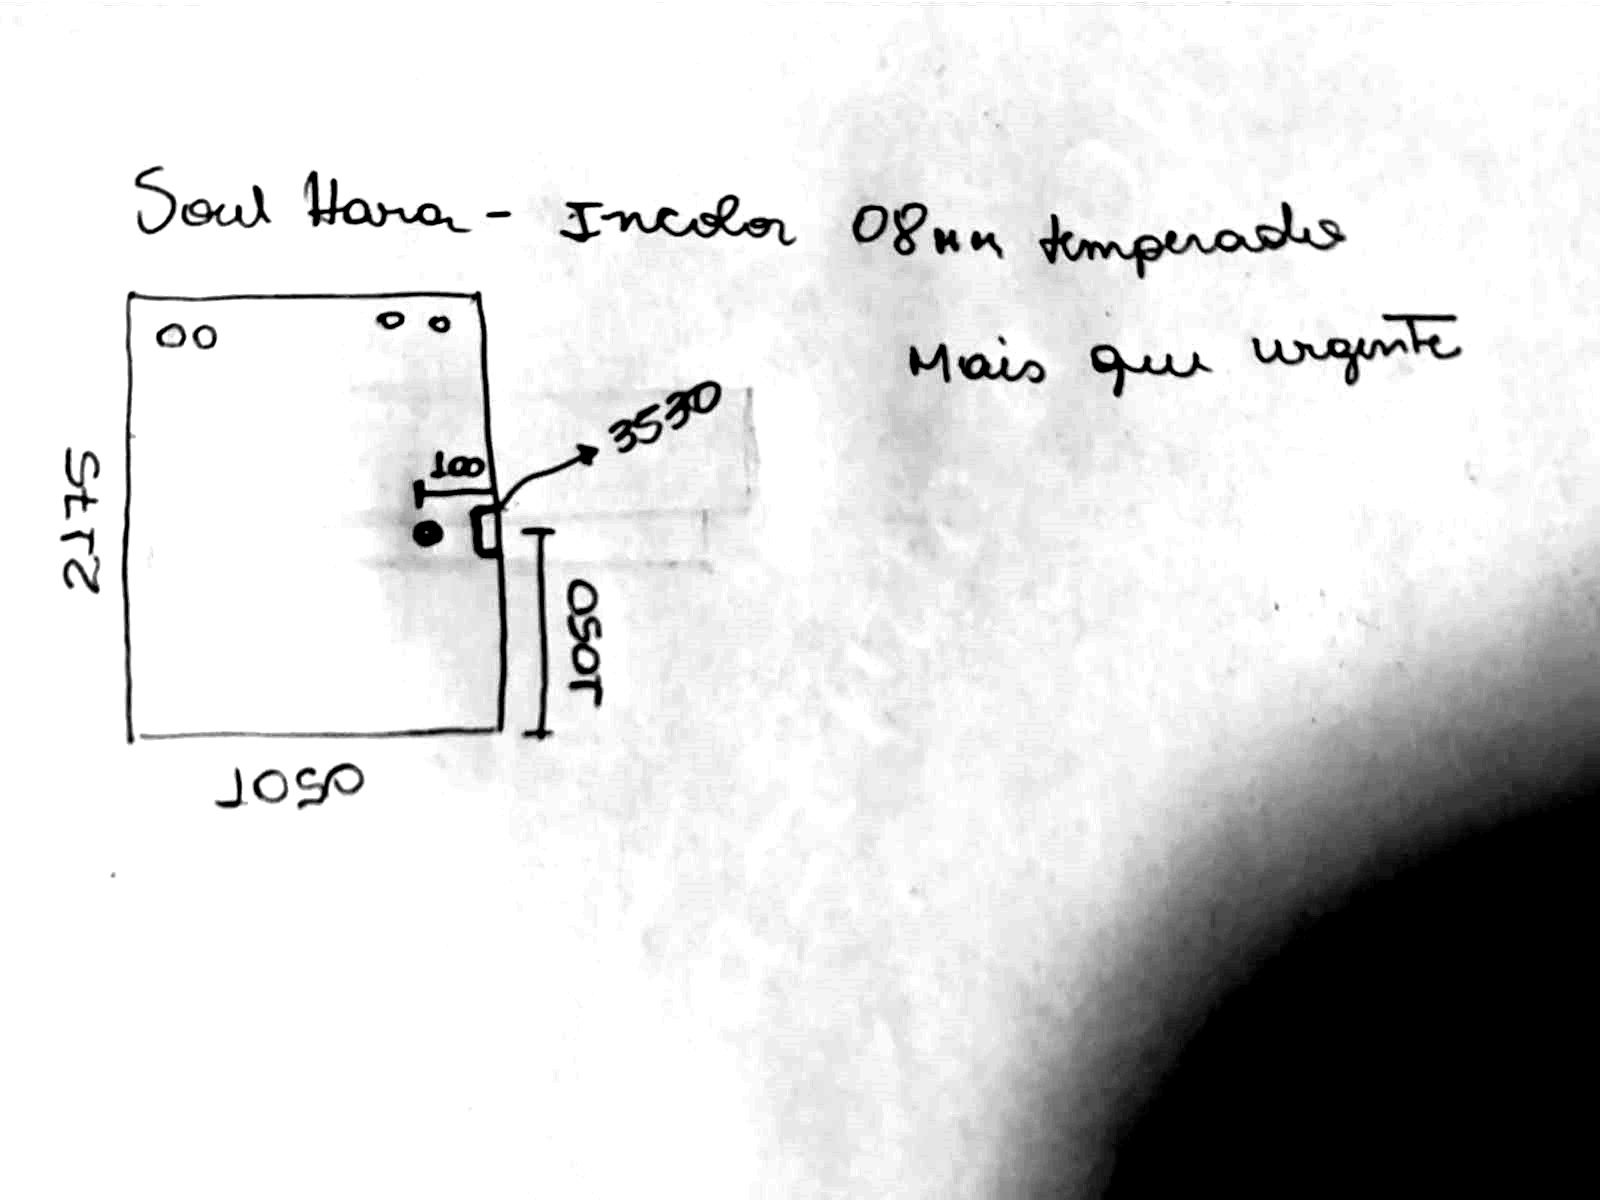 Soul Hara - Incolor 08mm temperado
Mais que urgente
3530
100
2175
1050
1050